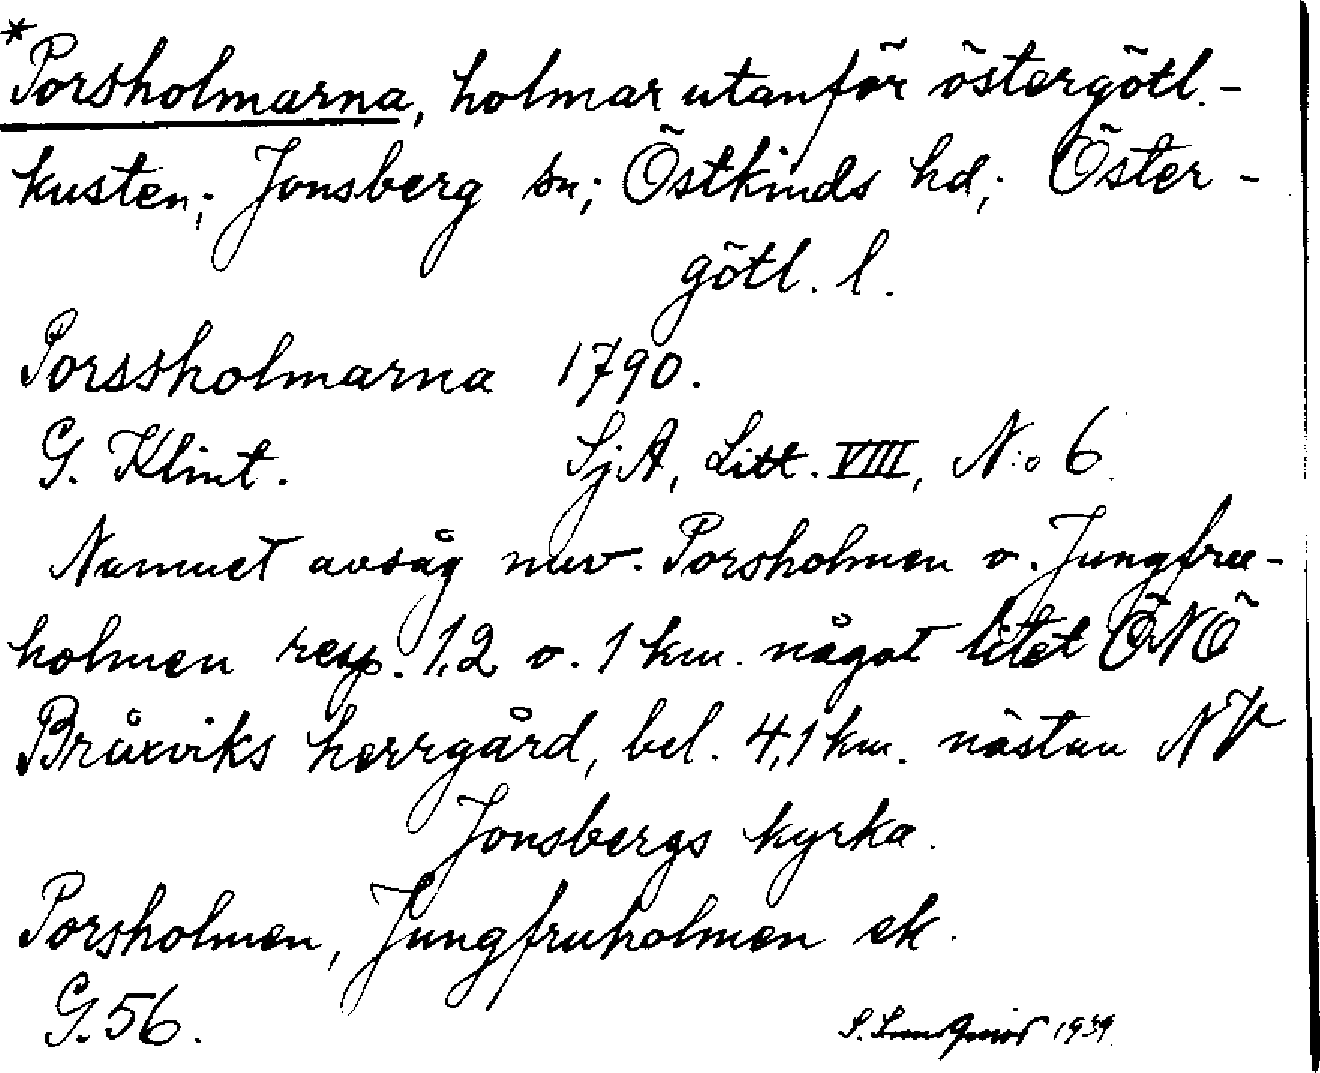 *Porsholmarna, holmar utanför östergötl.-
kusten; Jonsberg sn; Östkinds hd; Öster-
götl. l.
Porssholmarna 1790.
G. Klint. SjA, Litt. VIII, N:o 6.
Namnet avsåg nuv. Porsholmen o. Jungfru-
holmen resp. 1,2 o. 1 km. något litet ÖNÖ
Bråxviks herrgård, bel. 4,1 km. nästan NV
Jonsbergs kyrka.
Porsholmen, Jungfruholmen ek.
G. 56.
S. Lundqvist 1939.